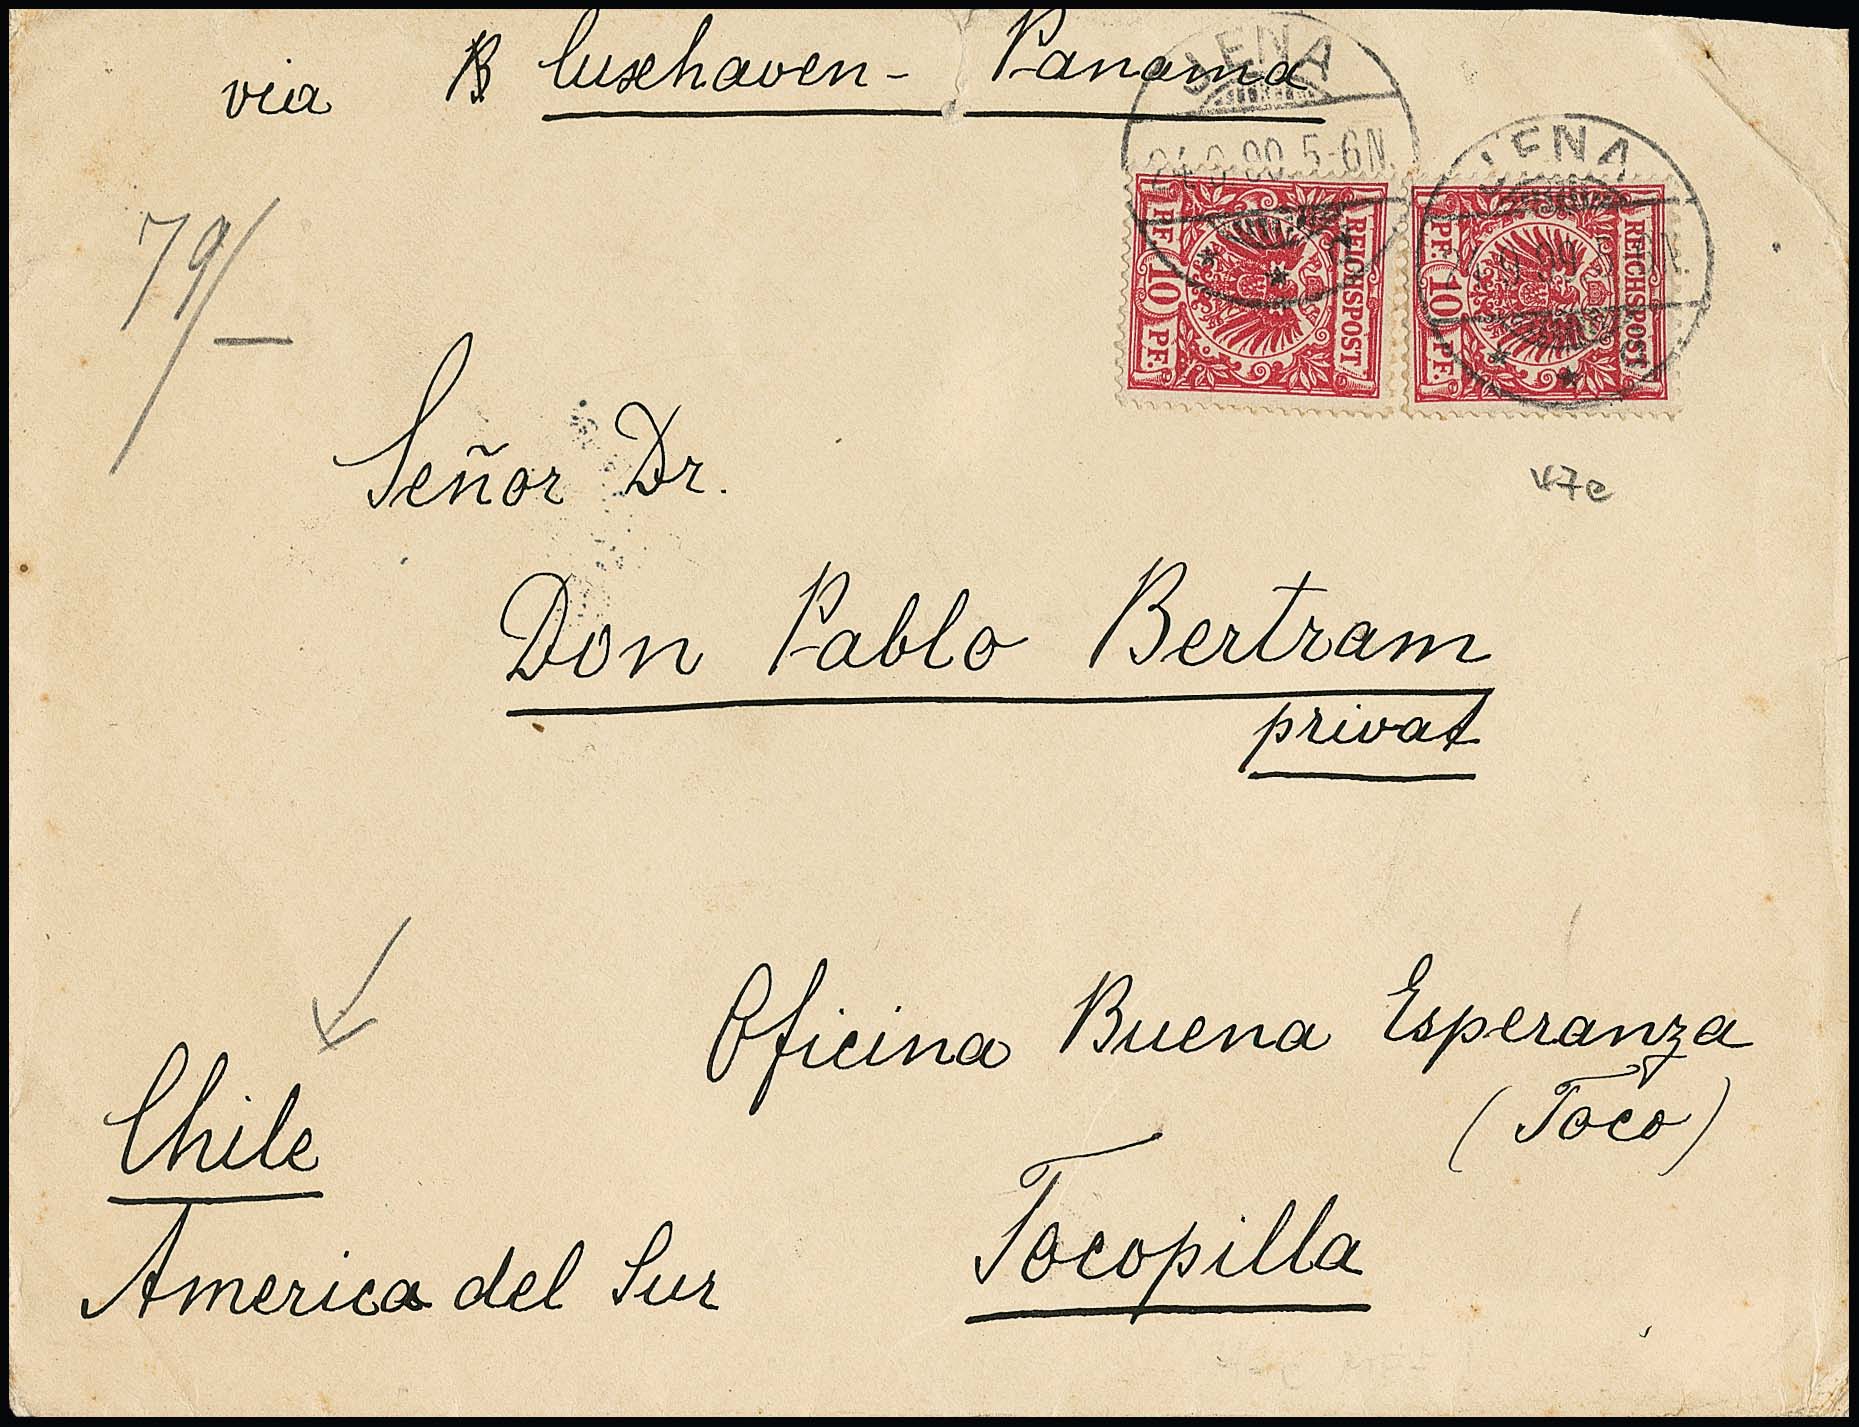 via Cuxhaven - Panama
JENA
24.9.00.5-6N.
JENA
REICHSPOST
PF. 10 PF.
REICHSPOST
PF. 10 PF.
79/–
47e
Señor Dr.
Don Pablo Bertram
privat
Oficina Buena Esperanza
(Toco)
Chile
Tocopilla
America del Sur